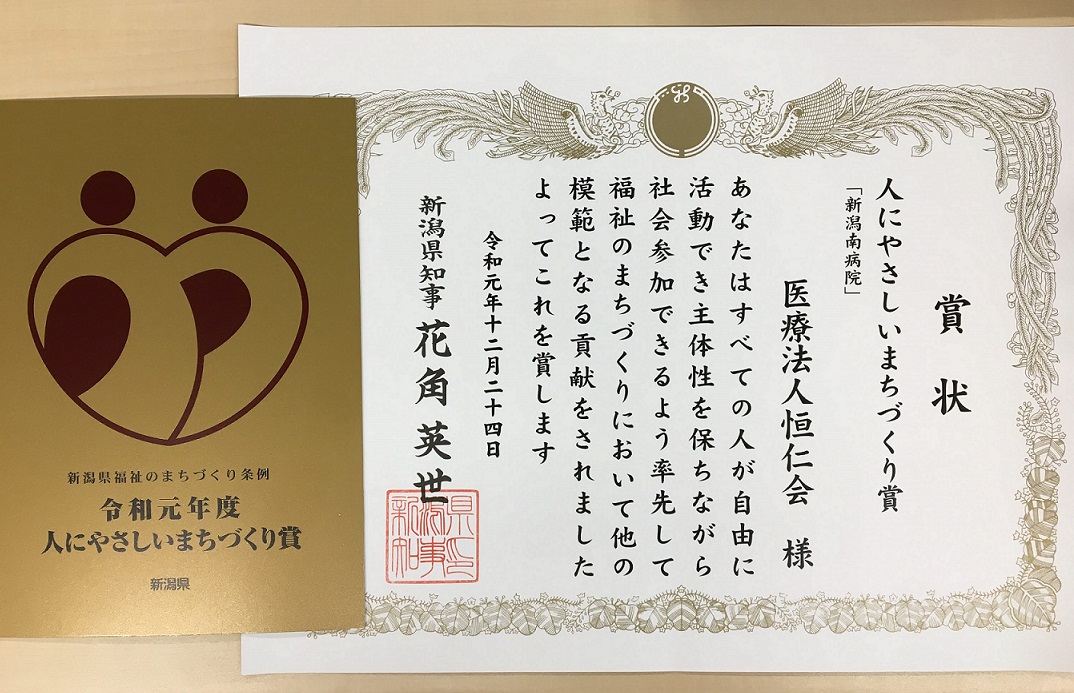 賞状
人にやさしいまちづくり賞
「新潟南病院」
医療法人恒仁会 様
あなたはすべての人が自由に
活動でき主体性を保ちながら
社会参加できるよう率先して
福祉のまちづくりにおいて他の
模範となる貢献をされました
よってこれを賞します
令和元年十二月二十四日
新潟県知事 花角英世
新潟県福祉のまちづくり条例
令和元年度
人にやさしいまちづくり賞
新潟県